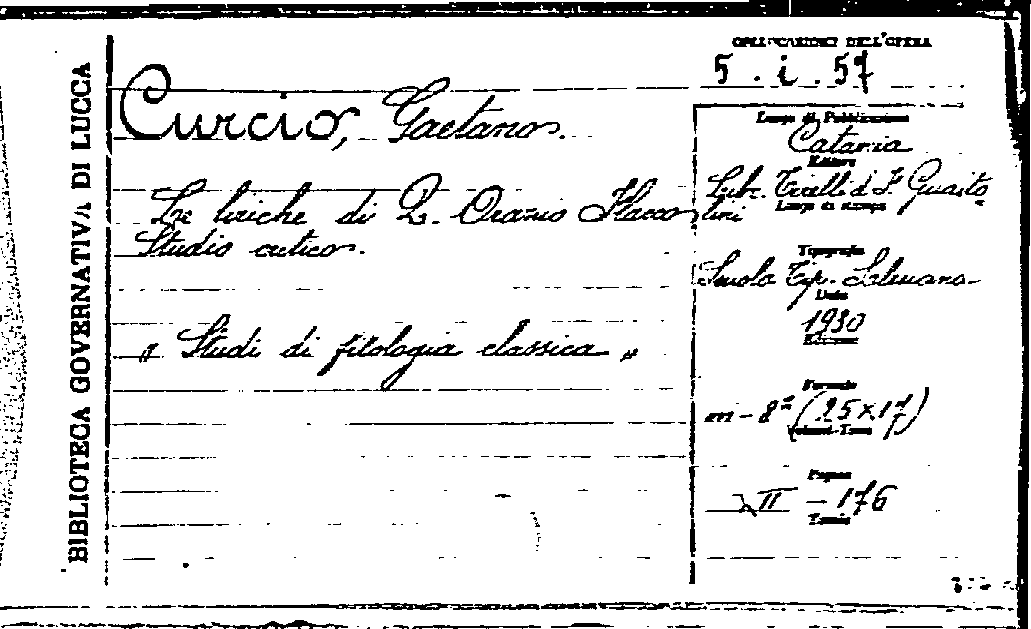 BIBLIOTECA GOVERNATIVA DI LUCCA
COLLOCAZIONE DELL'OPERA
5. i. 57
Curcio, Gaetano.
Le liriche di Q. Orazio Flacco
Studio critico.
„ Studi di filologia classica „
Luogo di Pubblicazione
Catania
Editore
Libr. Tirelli d F. Guaito
lini
Luogo di stampa
Tipografia
Scuola Tip. Salesiana
Data
1930
Edizione
Formato
in-8° (25x17)
Volumi-Tomi
Pagine
XII - 176
Tomie